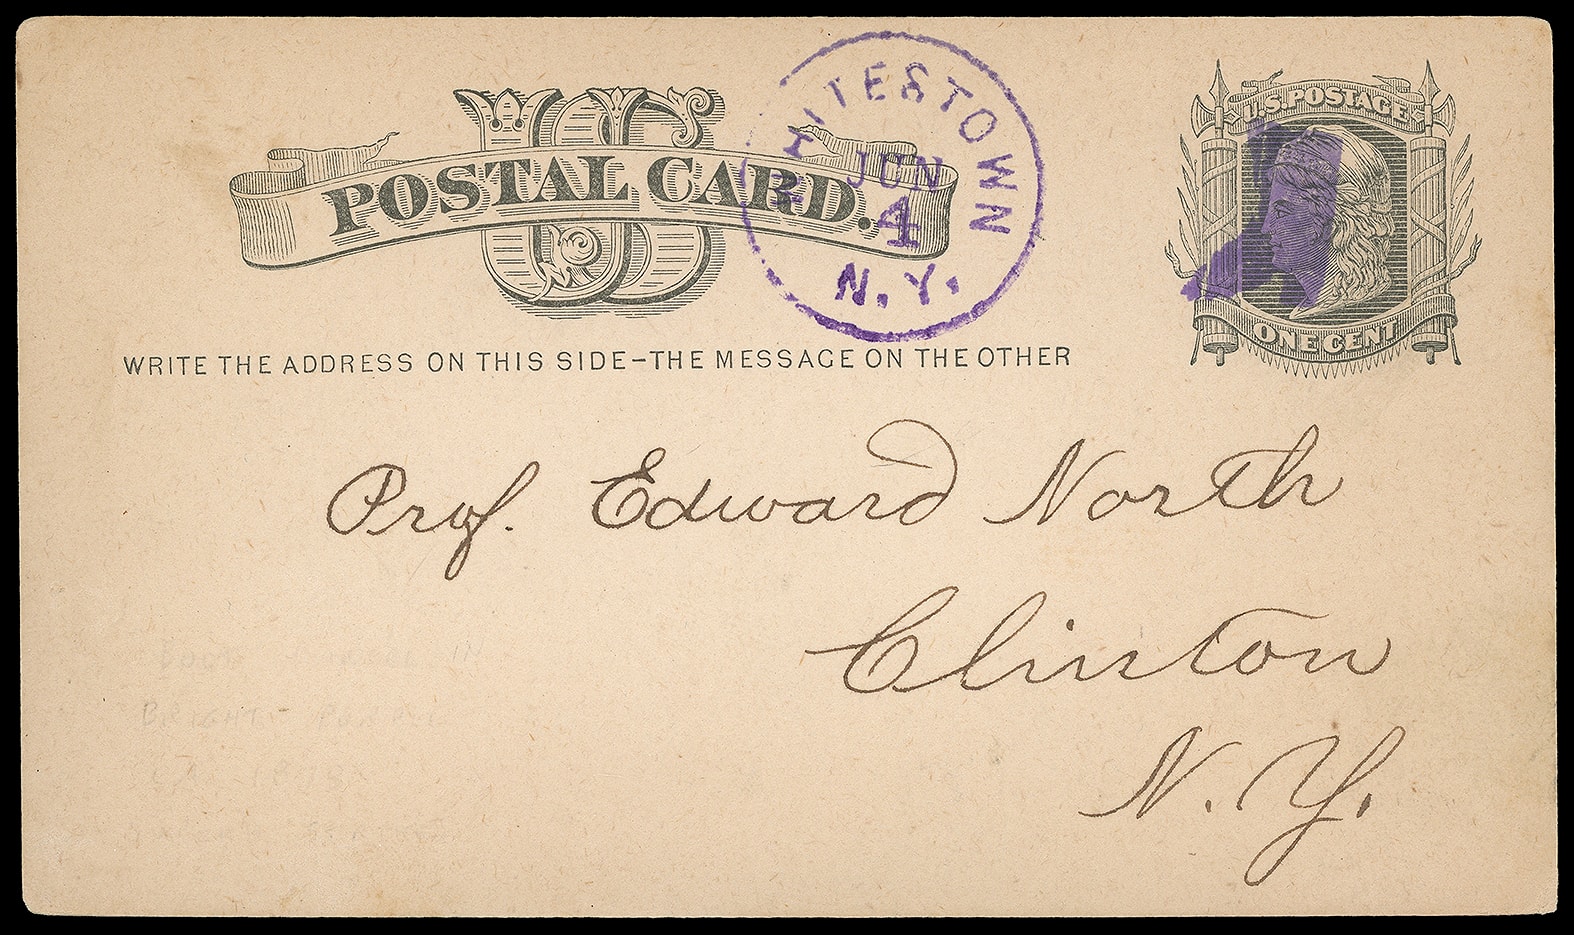 US
POSTAL CARD.
WHITESTOWN
JUN
4
N.Y.
U.S. POSTAGE
ONE CENT
WRITE THE ADDRESS ON THIS SIDE-THE MESSAGE ON THE OTHER
Prof. Edward North
Clinton
N. Y.
IN
BRIGHT